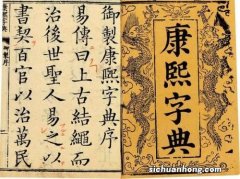 康熙字典
御製康熙字典序
易傳曰上古結繩而
治後世聖人易之以
書契百官以治萬民
sichuanhong.com